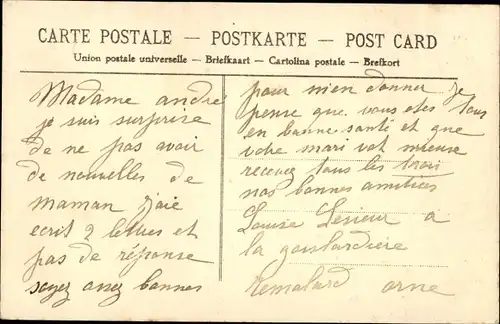 CARTE POSTALE — POSTKARTE — POST CARD
Union postale universelle — Briefkaart — Cartolina postale — Brefkort
Madame andré
je suis surprise
de ne pas avoir
de nouvelles de
maman j'aie
ecrit 2 lettres et
pas de réponse
soyez assez bonnes
pour m'en donner je
pense que vous etes tous
en bonne santé et que
votre mari vat mieuse
recevez tous les trois
nos bonnes amitiées
Louise Lesieur a
la goislardière
Remalard orne